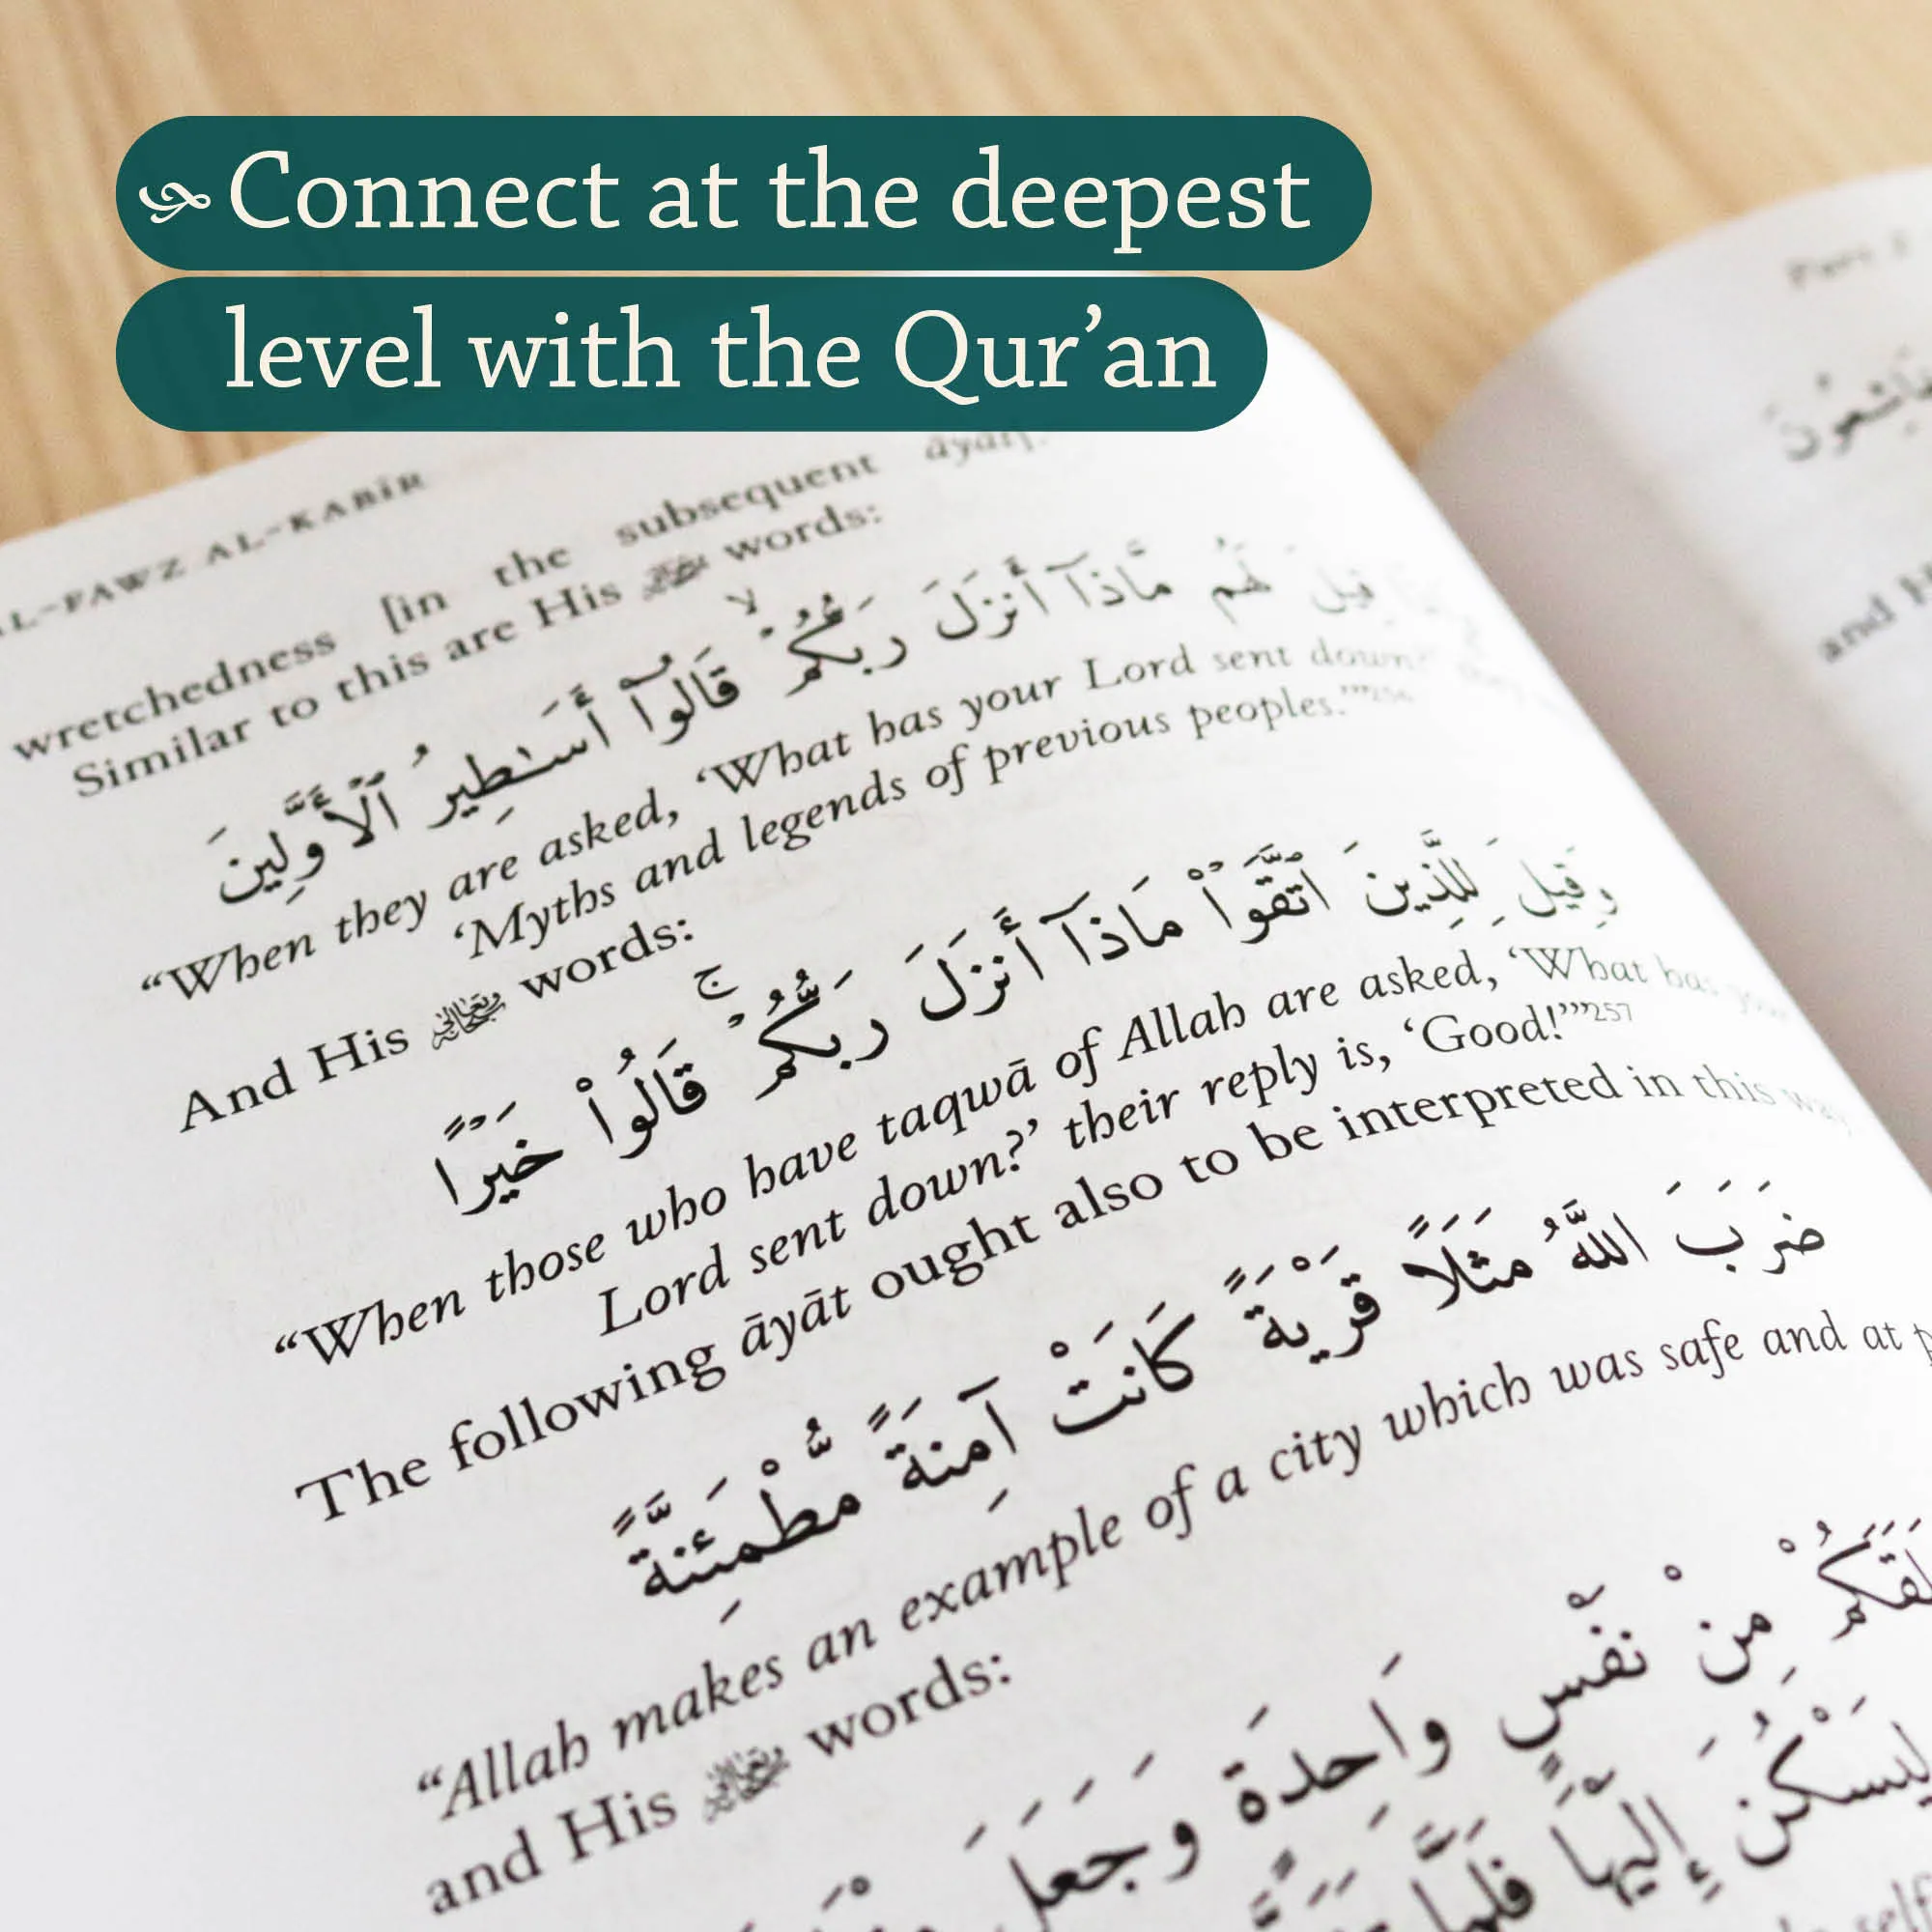 Connect at the deepest
level with the Qur’an
AL-FAWZ AL-KABĪR
wretchedness [in the subsequent āyāt].
Similar to this are His words:
قِيلَ لَهُم مَّاذَآ أَنزَلَ رَبُّكُمْ ۙ قَالُوٓا۟ أَسَـٰطِيرُ ٱلْأَوَّلِينَ
“When they are asked, ‘What has your Lord sent down?’
‘Myths and legends of previous peoples.’”
And His words:
وَقِيلَ لِلَّذِينَ ٱتَّقَوْا۟ مَاذَآ أَنزَلَ رَبُّكُمْ ۚ قَالُوا۟ خَيْرًا
“When those who have taqwā of Allah are asked, ‘What has your
Lord sent down?’ their reply is, ‘Good!’”257
The following āyāt ought also to be interpreted in this way
ضَرَبَ اللَّهُ مَثَلًا قَرْيَةً كَانَتْ آمِنَةً مُّطْمَئِنَّةً
“Allah makes an example of a city which was safe and at
and His words:
مِنْ نَفْسٍ وَاحِدَةٍ وَجَعَلَ
لِيَسْكُنَ إِلَيْهَا فَلَمَّا
Part 2
and